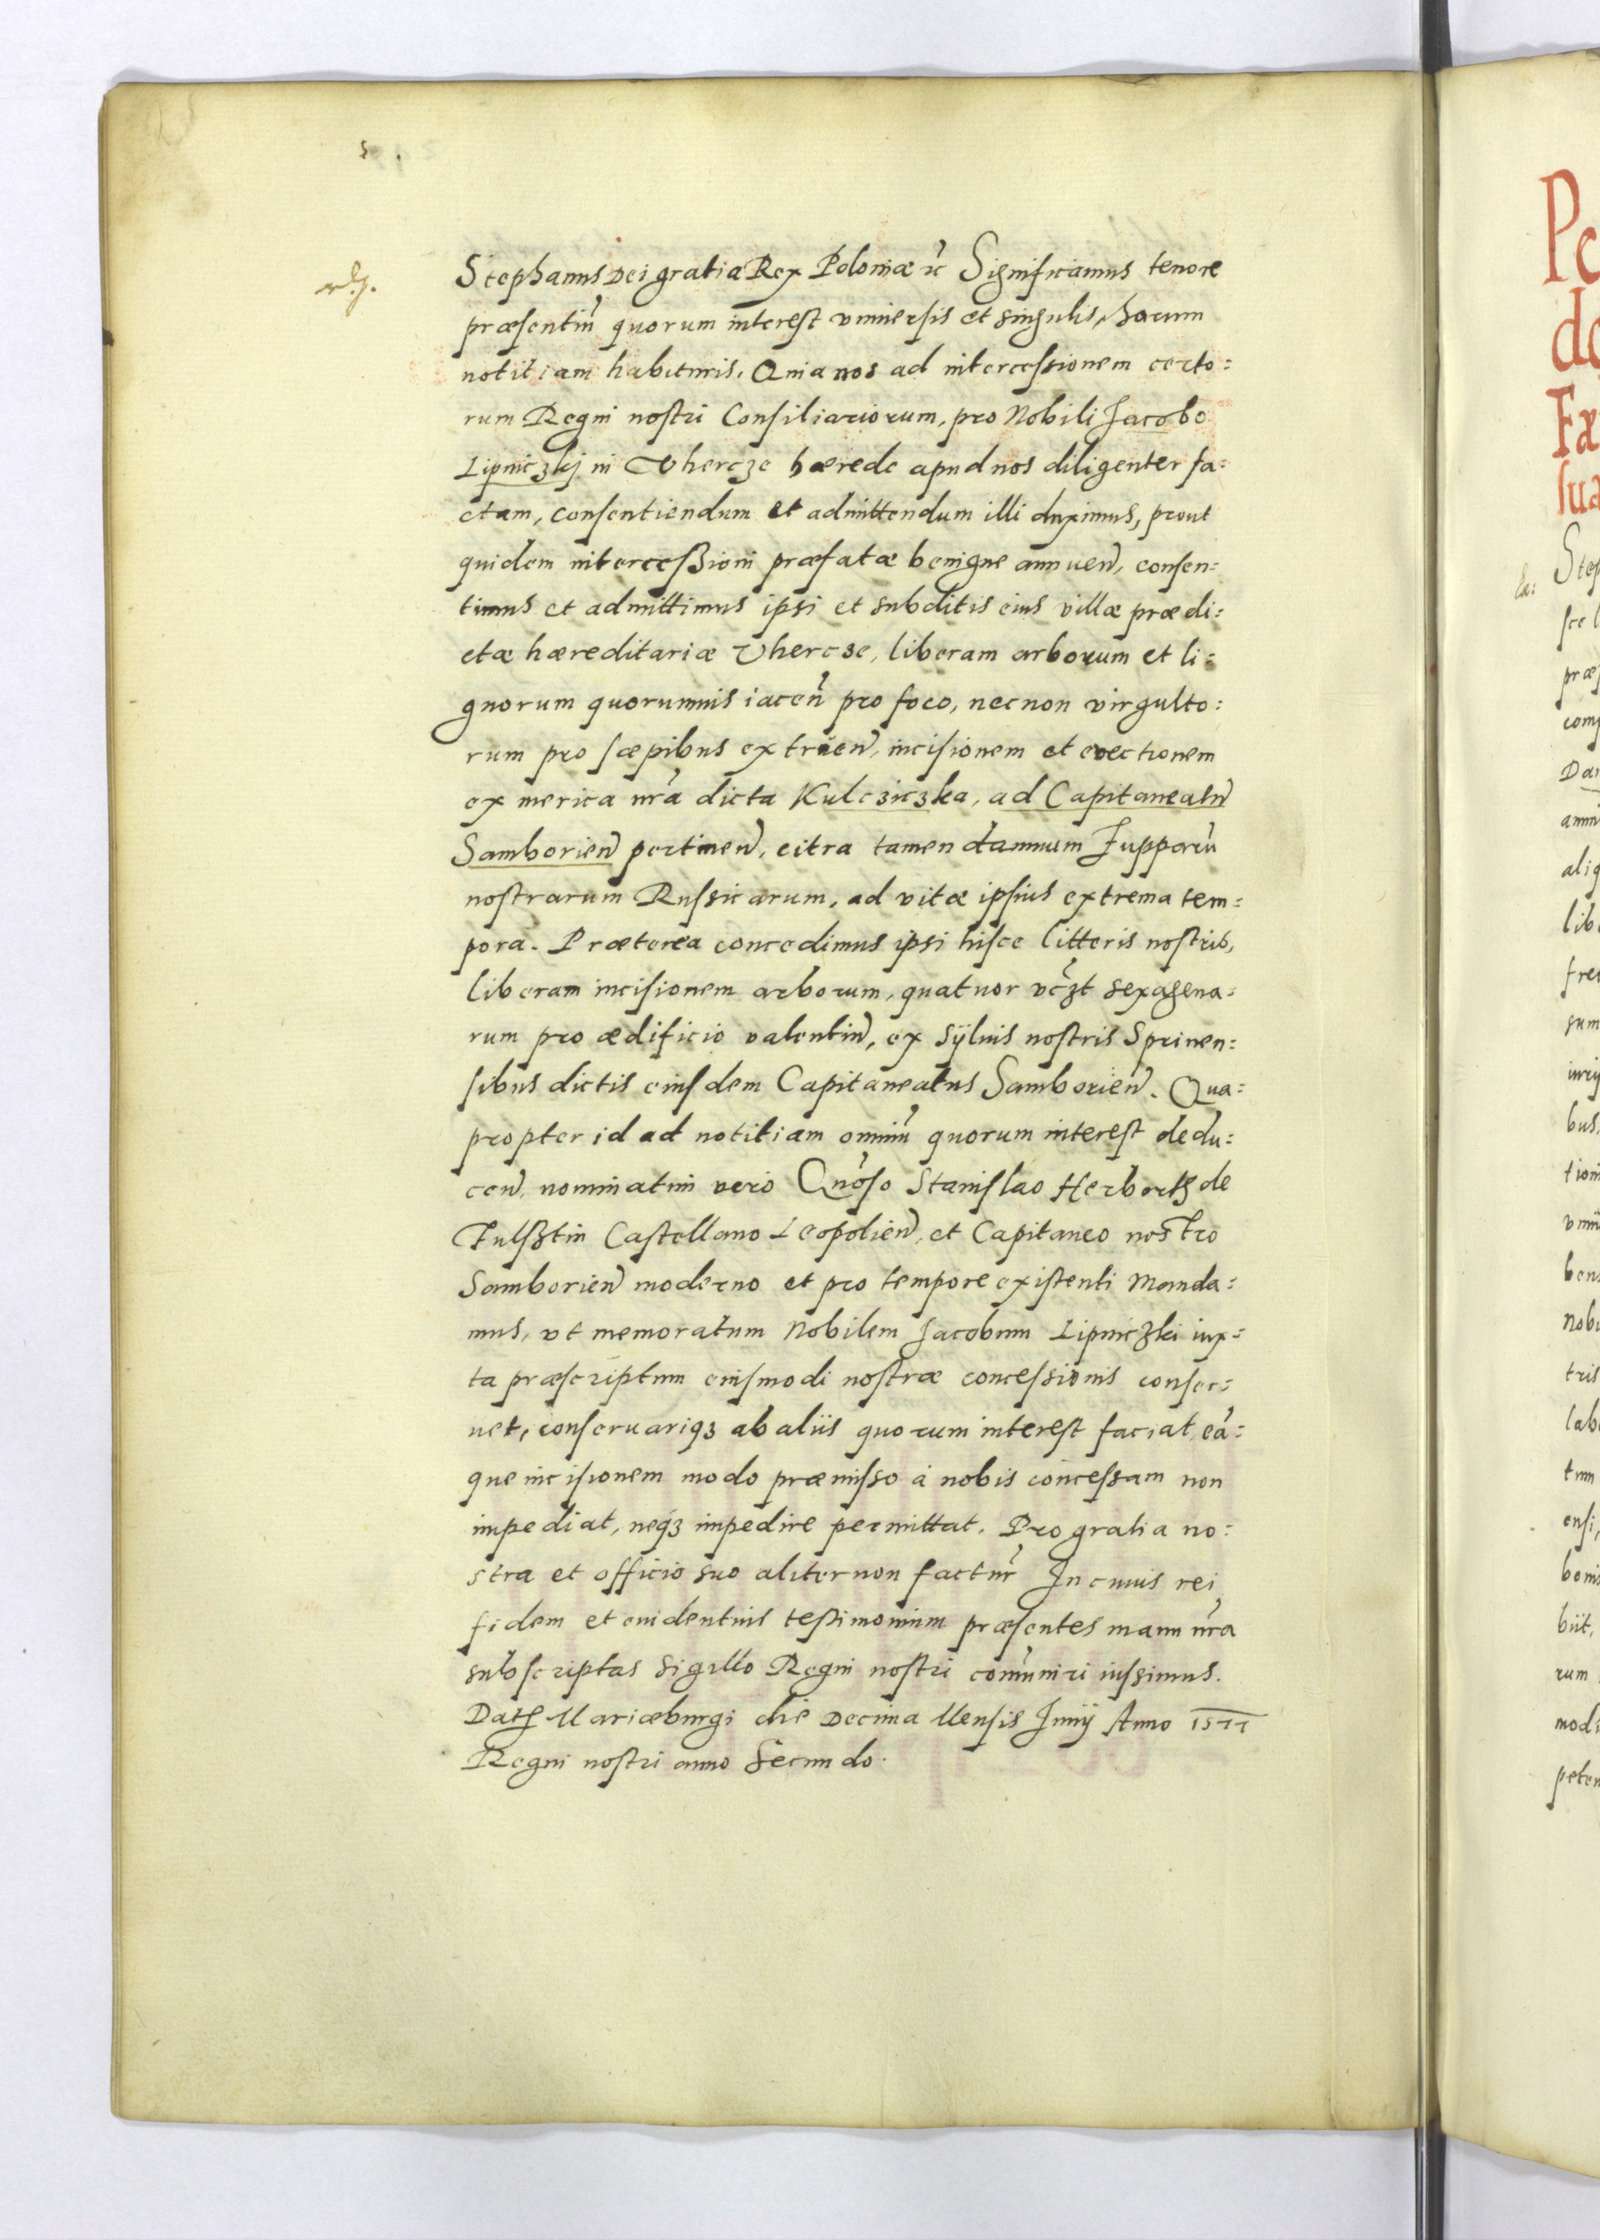 Stephanus Dei gratia Rex Poloniæ etc Significamus tenore
præsentiũ quorum interest vniuersis et singulis, harum
notitiam habituris, Quia nos ad intercessionem certo:
rum Regni nostri Consiliariorum, pro Nobili Jacobo
Lipniczkj in Vhercze hærede apud nos diligenter fa:
ctam, consentiendum et admittendum illi duximus, prout
quidem intercessioni præfatæ benigne annuen̄, consen:
timus et admittimus ipsi et subditis eius villæ prædi:
ctæ hæreditariæ Vhercze, liberam arborum et li:
gnorum quorumuis iacen̄ pro foco, necnon virgulto:
rum pro sæpibus extruen̄, incisionem et evectionem
ex merica nrã dicta Kulcziczka, ad Capitaneatũ
Samborien̄ pertinen̄, citra tamen damnum Jupparũ
nostrarum Russicarum, ad vitæ ipsius extrema tem:
pora. Præterea concedimus ipsi hisce litteris nostris,
liberam incisionem arborum, quatuor vczt sexagena:
rum pro ædificio valentiũ, ex syluis nostris Sprinen:
sibus dictis eiusdem Capitaneatus Samborien̄. Qua:
propter id ad notitiam omniũ quorum interest dedu:
cen̄, nominatim vero Gnoso Stanislao Herborth de
Fulsztin Castellano Leopolien̄, et Capitaneo nostro
Samborien̄ moderno et pro tempore existenti manda:
mus, vt memoratum Nobilem Jacobum Lipniczki iux:
ta præscriptum eiusmodi nostræ concessionis conser:
uet, conseruariq3 ab aliis quorum interest faciat, eã:
que incisionem modo præmisso à nobis concessam non
impediat, neq3 impedire permittat. Pro gratia no:
stra et officio suo aliter non factur̃ In cuius rei
fidem et euidentius testimonium præsentes manu nrã
subscriptas sigillo Regni nostri com̃uniri iussimus.
Dat Mariæburgi die Decima Mensis Junij Anno 1577
Regni nostri anno Secundo.
Pe
Fæ
sua
Step